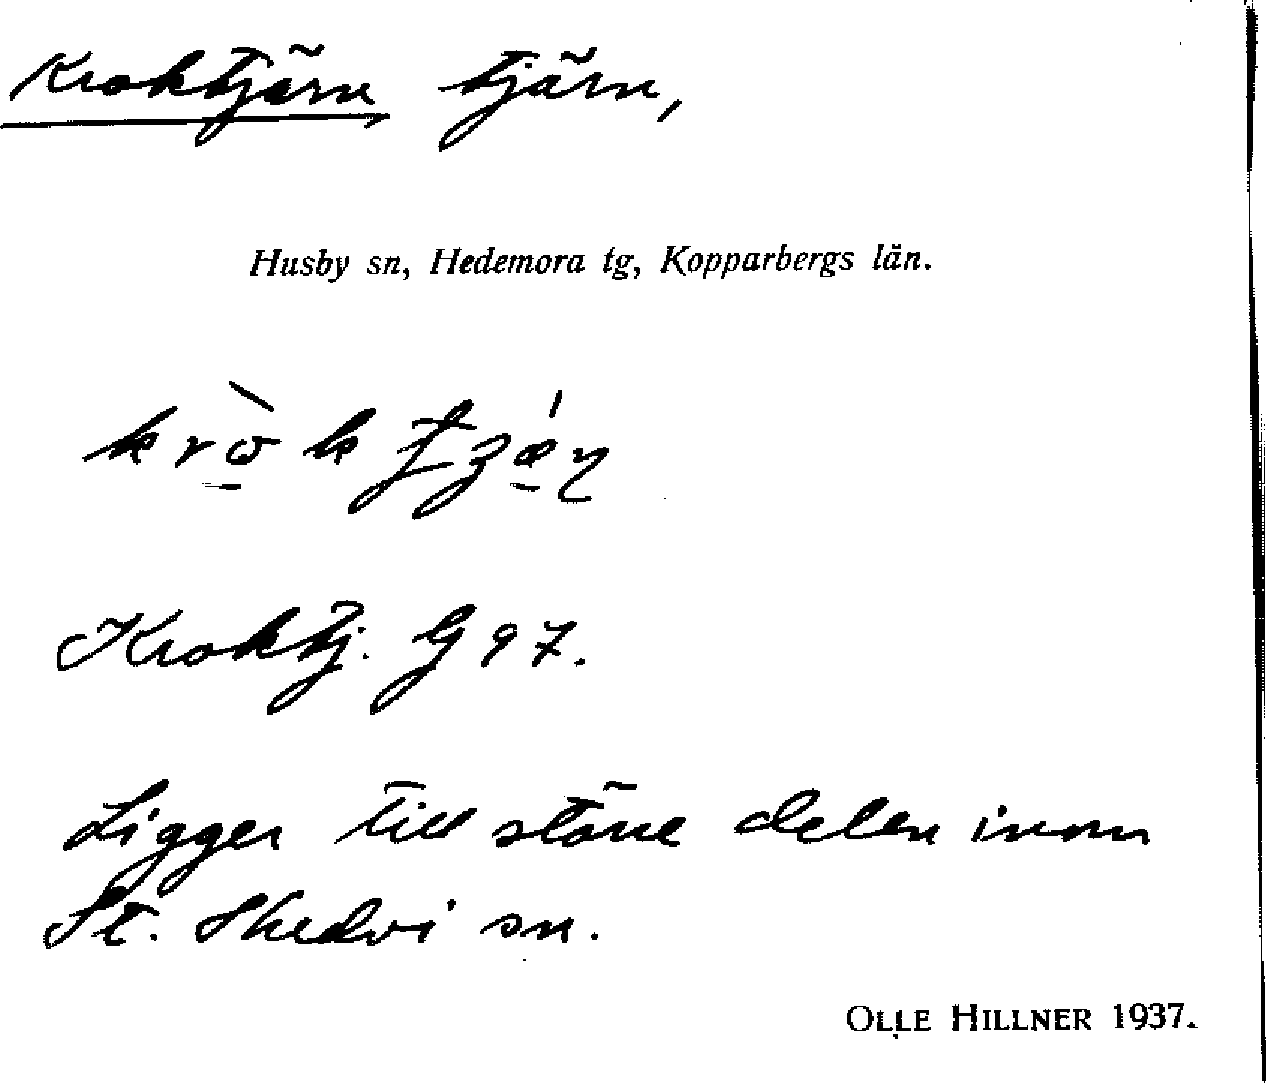 Kroktjärn, tjärn,
Husby sn, Hedemora tg, Kopparbergs län.
Kroktj. G 97.
Ligger till större delen inom
St. Skedvi sn.
OLLE HILLNER 1937.